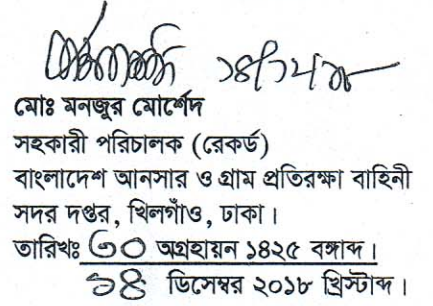 ১৪/১২/১৮
মোঃ মনজুর মোর্শেদ
সহকারী পরিচালক (রেকর্ড)
বাংলাদেশ আনসার ও গ্রাম প্রতিরক্ষা বাহিনী
সদর দপ্তর, খিলগাঁও, ঢাকা।
তারিখঃ ৩০ অগ্রহায়ন ১৪২৫ বঙ্গাব্দ।
১৪ ডিসেম্বর ২০১৮ খ্রিস্টাব্দ।